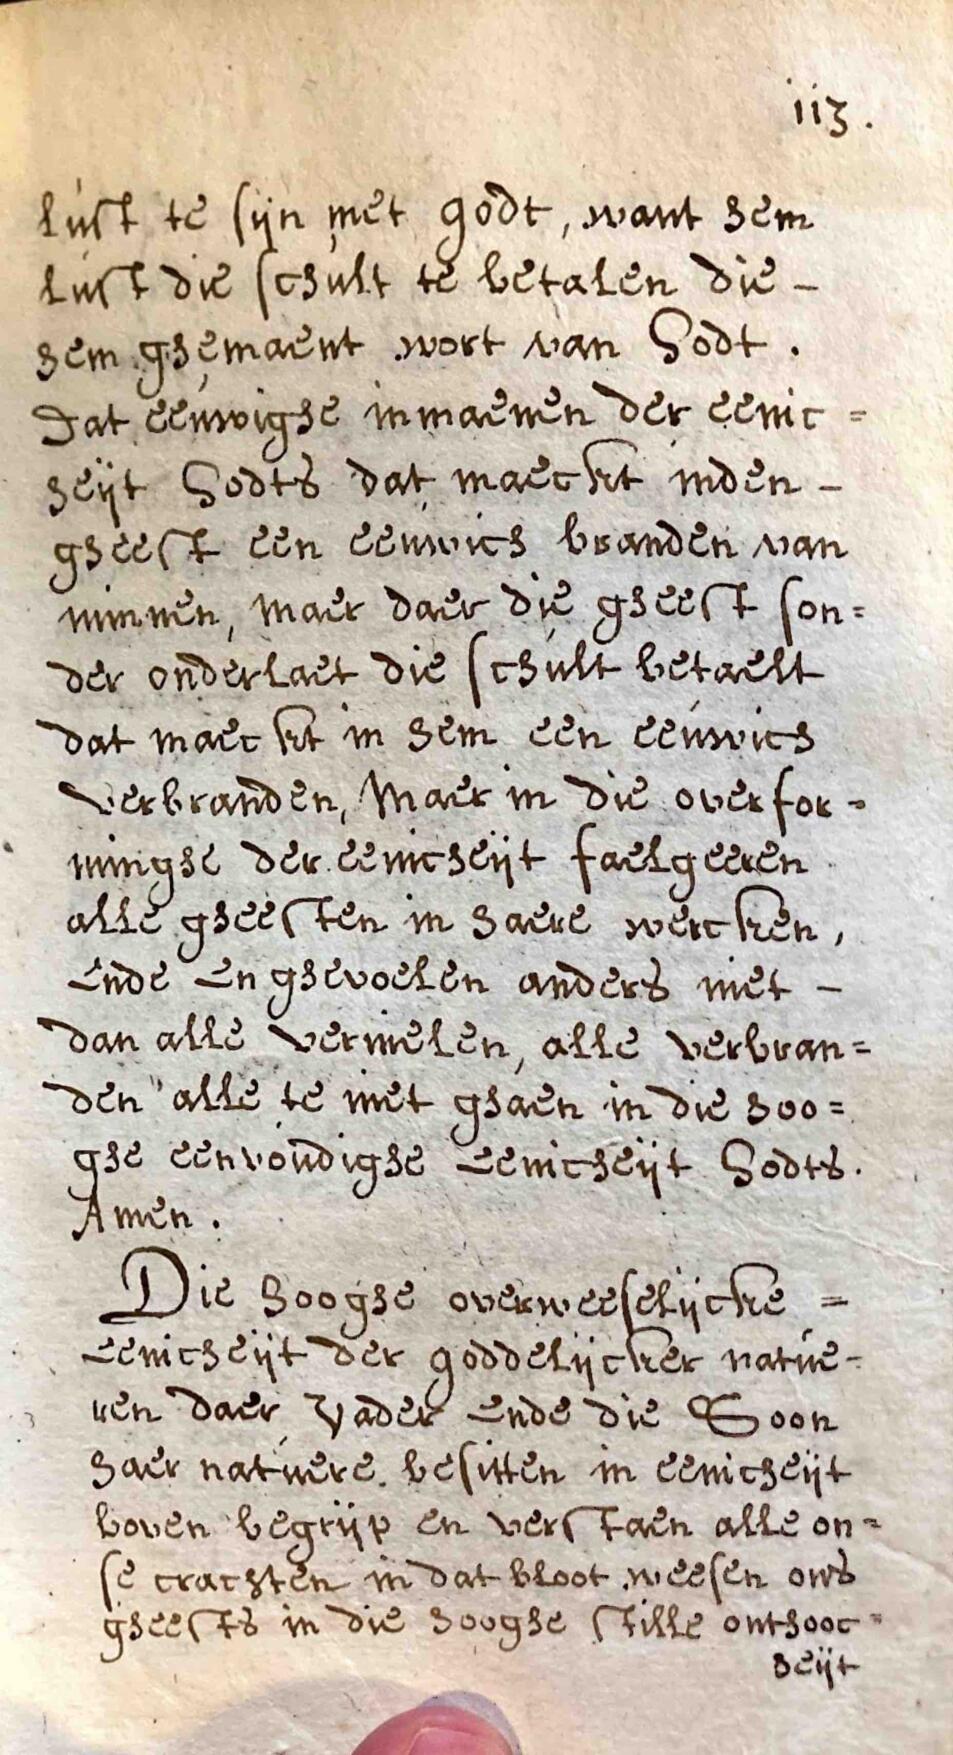 113.
lust te sijn met godt, want hem
lust die schult te betalen die -
hem ghemaent wort van Godt.
Dat eeuwighe inmaenen der eenic =
heijt Godts dat maeckt inden -
gheest een eeuwich branden van
minnen, maer daer die gheest son =
der onderlaet die schult betaelt
dat maeckt in hem een eeuwich
verbranden, Maer in die overfor -
minghe der eenicheijt faelgeeren
alle gheesten in haere wercken,
Ende En ghevoelen anders niet -
dan alle vernielen, alle verbran =
den alle te niet ghaen in die hoo =
ghe eenvoudighe Eenicheijt Godts.
Amen.
Die hooghe overweeselijcke =
Eenicheijt der goddelijcker natue -
ren daer Vader Ende die Soon
haer natuere besitten in eenicheijt
boven begrijp en verstaen alle on =
se crachten in dat bloot weesen ons
gheests in die hooghe stille onthooc =
heijt